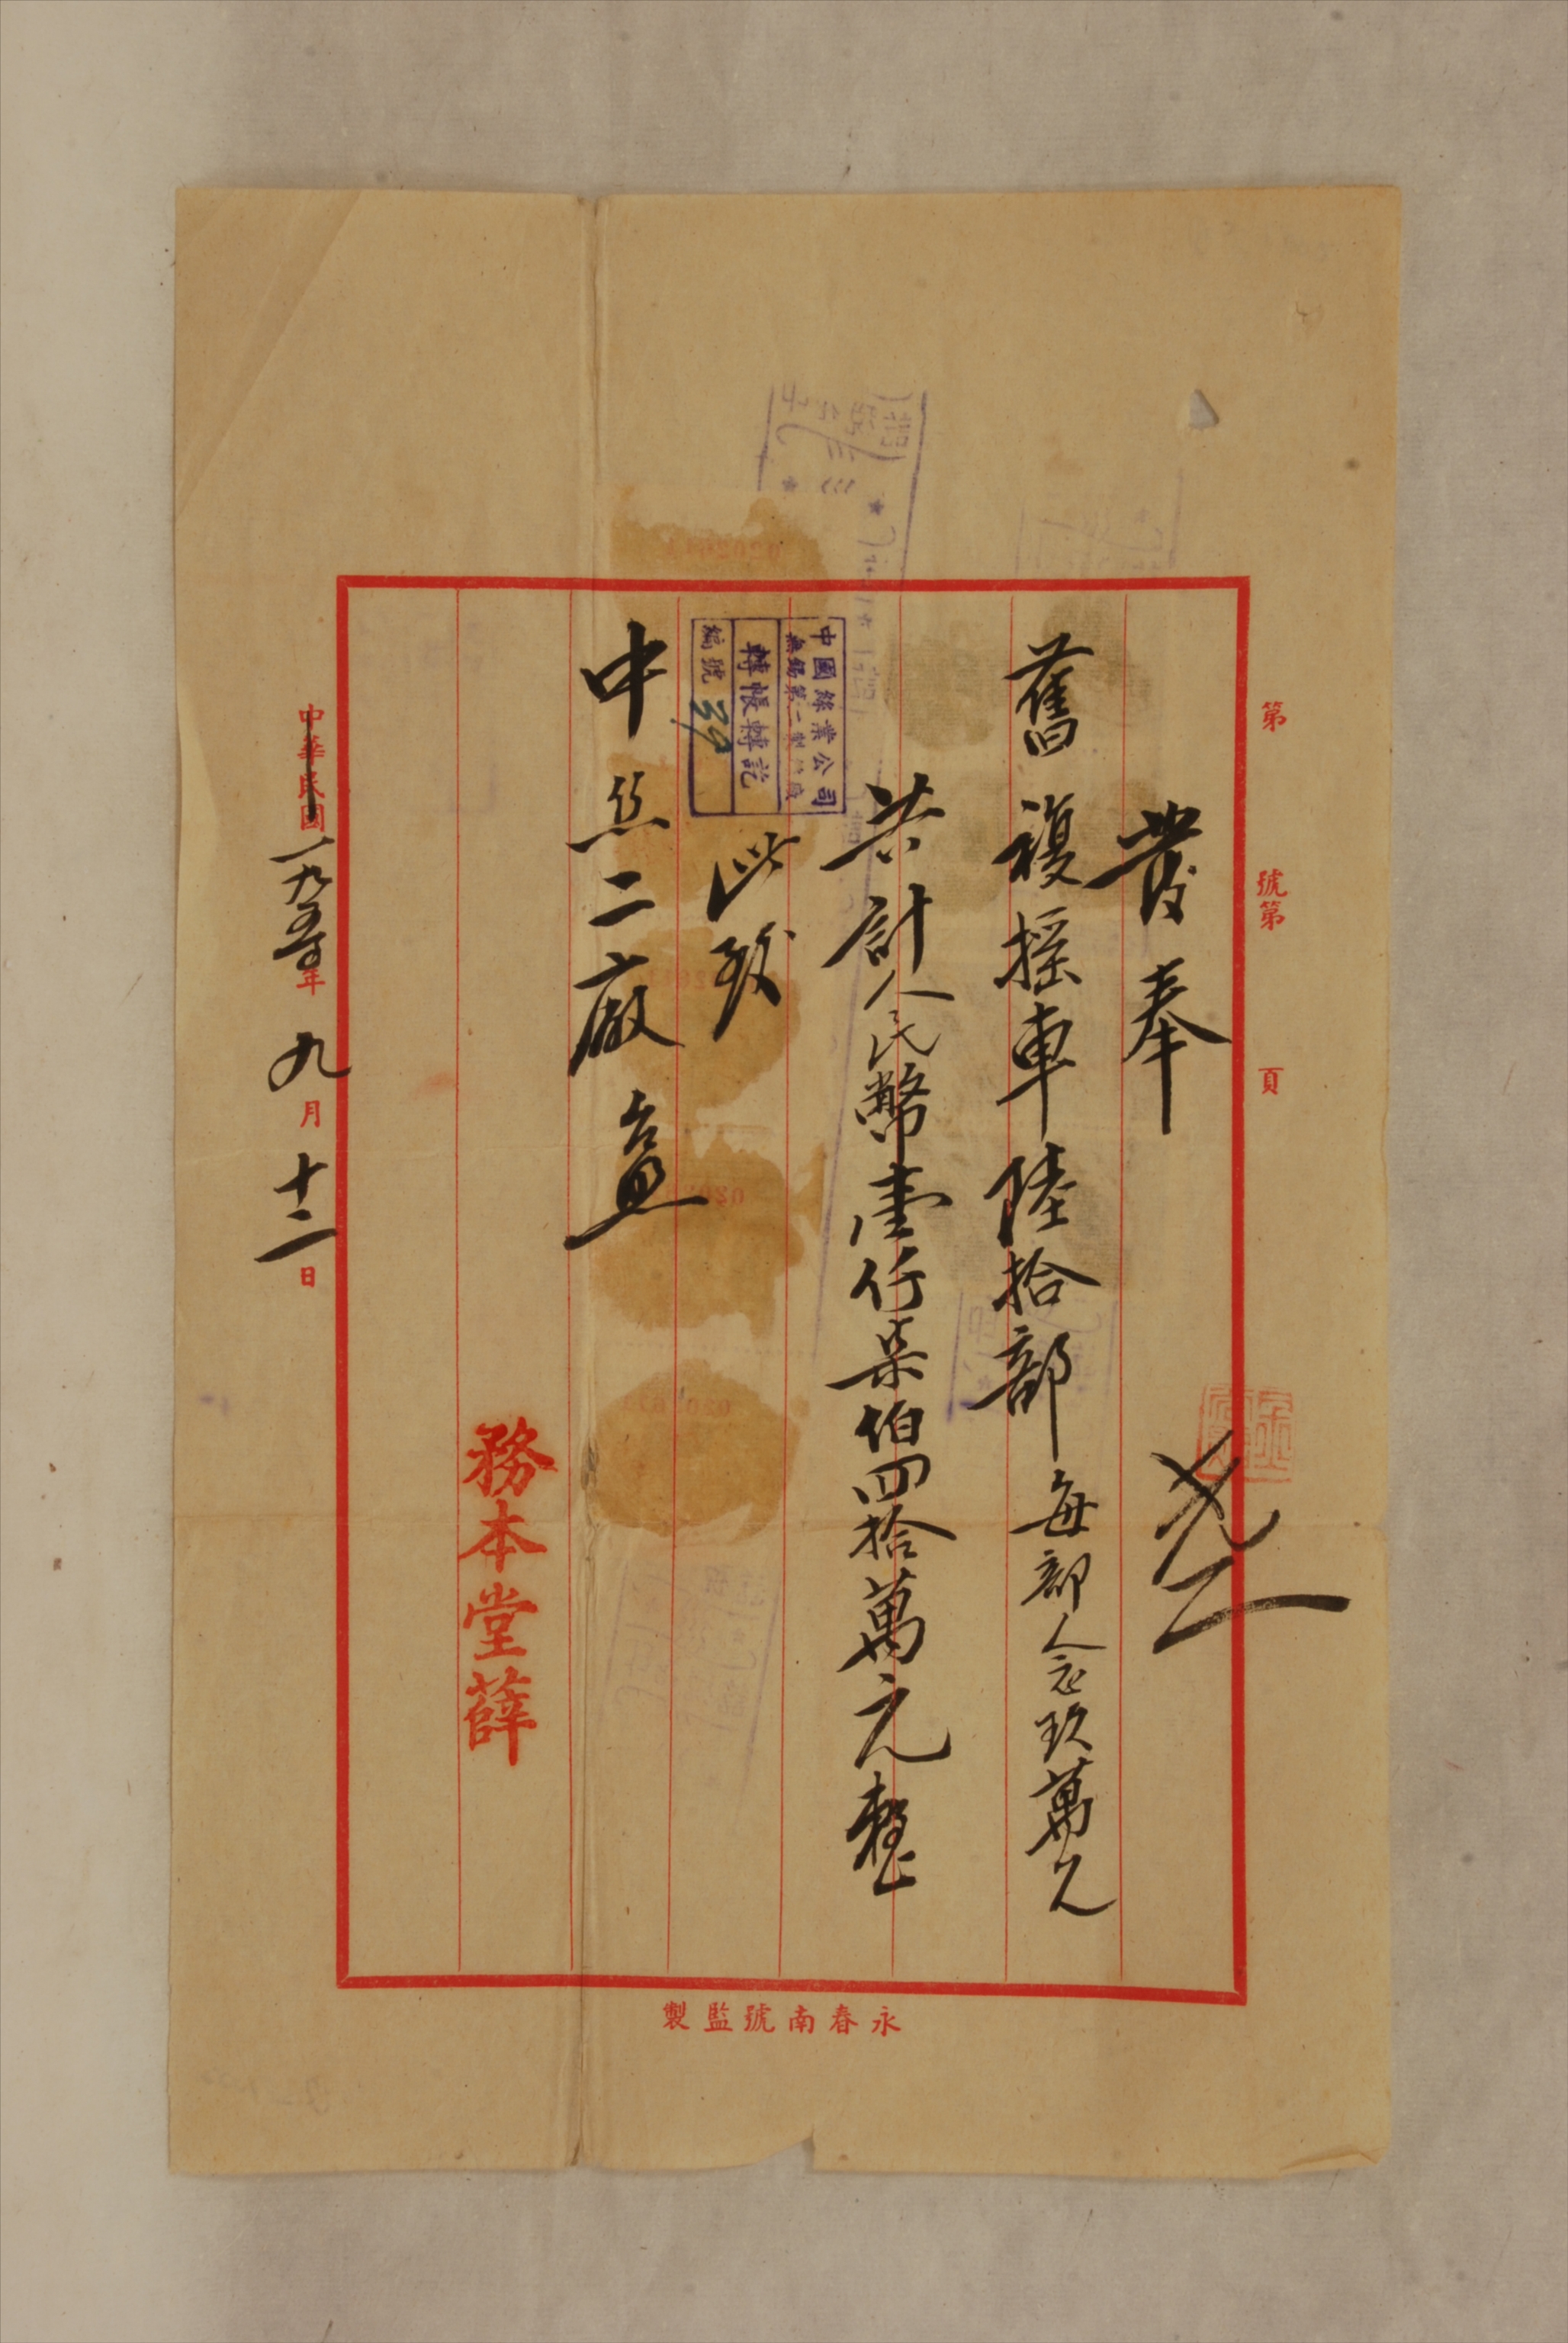 第 號第 頁
發奉
舊複摇車陸拾部 每部人念玖萬元
共計人民幣壹仟柒佰四拾萬元整
中國絲業公司
無錫第二製絲廠
轉帳轉訖
編號 39
此致
中丝二廠 台照
務本堂薛
中華民國一九五〇年九月十二日
永春南號監製